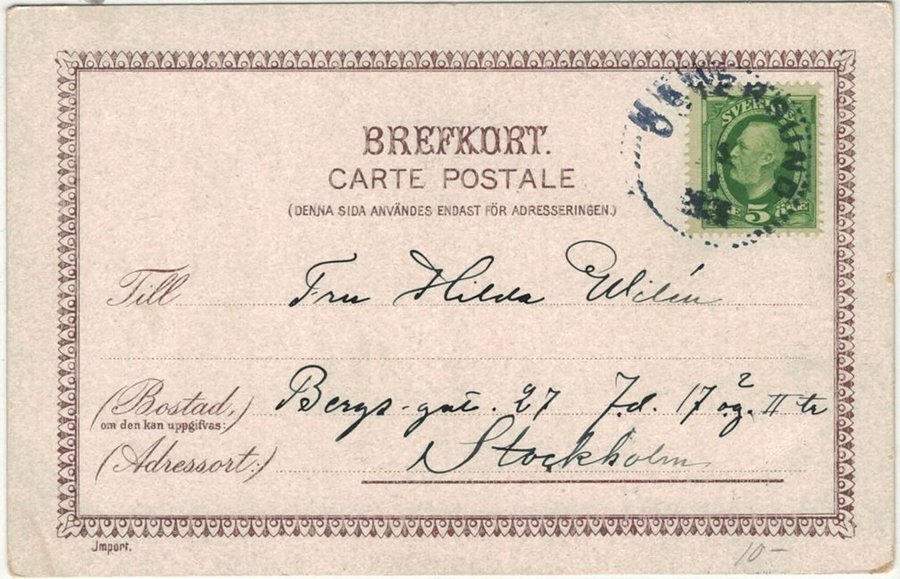 BREFKORT.
CARTE POSTALE
(DENNA SIDA ANVÄNDES ENDAST FÖR ADRESSERINGEN.)
ÖSTERSUND
SVERIGE
5 ÖRE
Till Fru Hilda Wilén
(Bostad,) Bergs-gat. 27 7.d. 17 2 ög. II tr
om den kan uppgifvas:
(Adressort:) Stockholm
Import.
10-